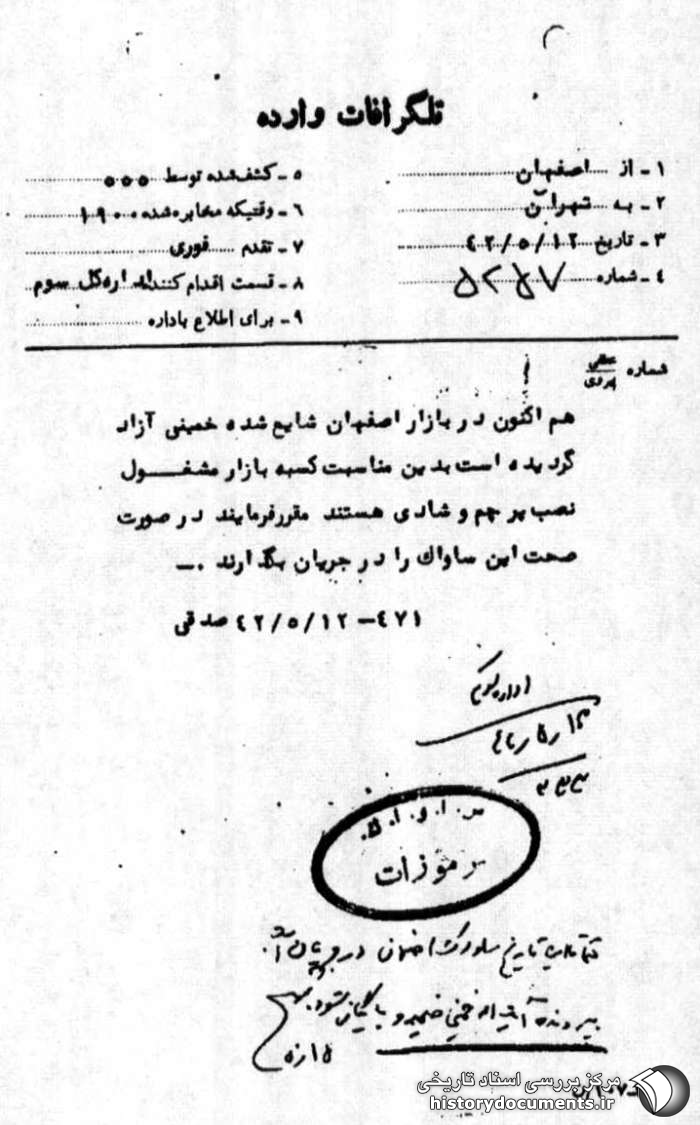 تلگرافات وارده
۱ - از اصفهان
۲ - به تهران
۳ - تاریخ ۴۲/۵/۱۲
۴ - شماره ۵۲۵۷
۵ - کشف‌شده توسط ۵۵۵
۶ - وقتیکه مخابره‌شده ۱۹۰۰
۷ - تقدم فوری
۸ - قسمت اقدام کننده اداره‌کل سوم
۹ - برای اطلاع باداره
شماره
هم اکنون در بازار اصفهان شایع شده خمینی آزاد
گردیده است بدین مناسبت کسبه بازار مشغول
نصب پرچم و شادی هستند مقررفرمایند در صورت
صحت این ساواک را در جریان بگذارند .-
۴۷۱-۴۲/۵/۱۲ صدقی
۳۳۳
س.ا.و.ا.ک.
مرموزات
ساواک اصفهان در جریان
مرکز بررسی اسناد تاریخی
historydocuments.ir